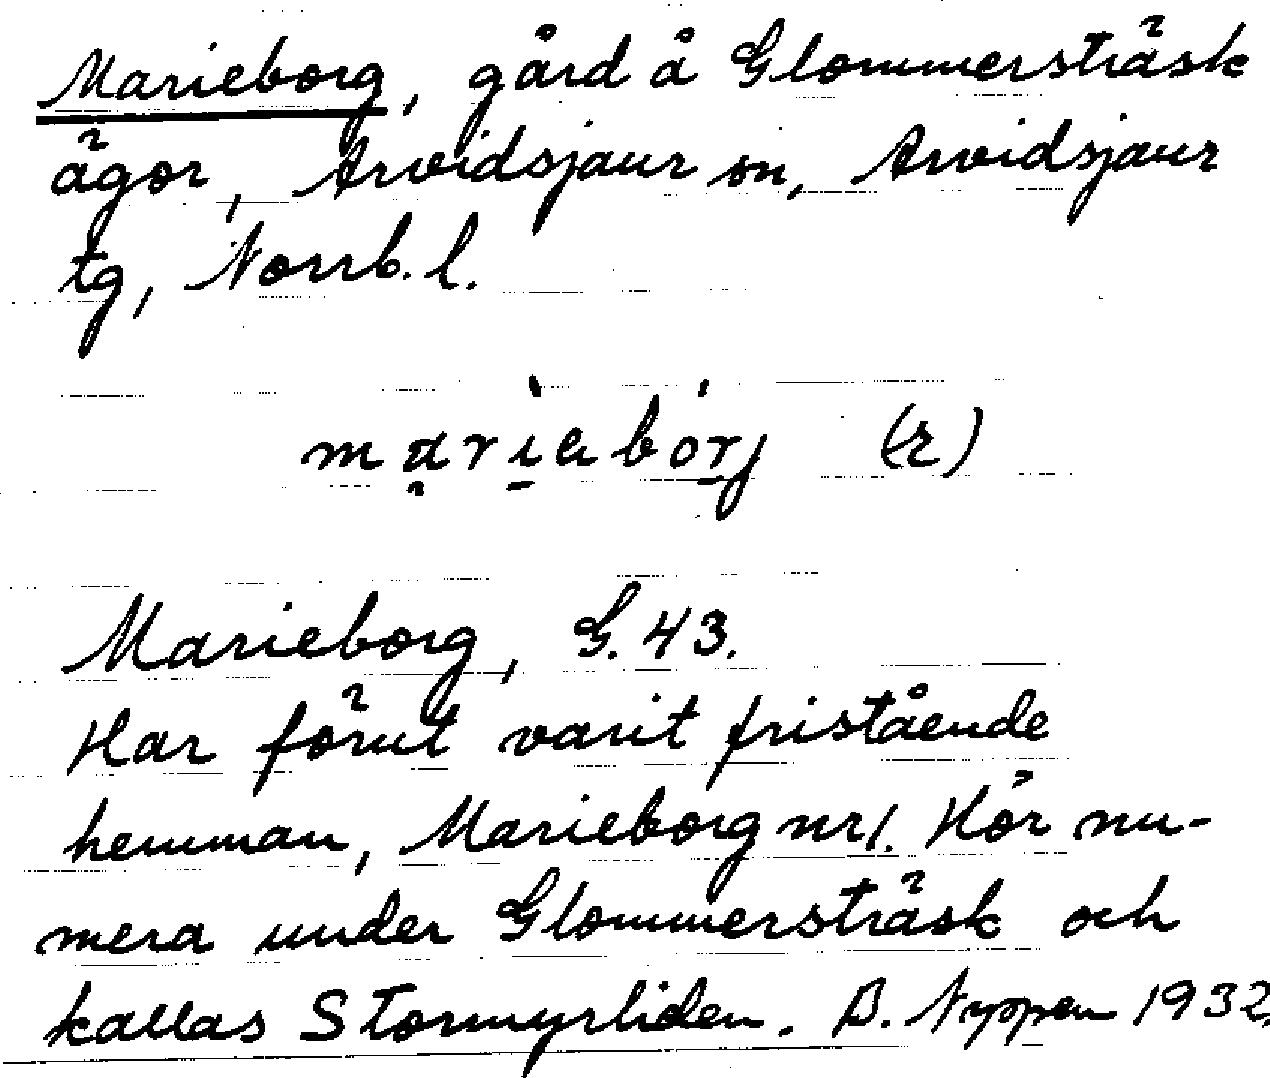 Marieborg, gård å Glommersträsk
ägor, Arvidsjaur sn, Arvidsjaur
tg, Norrb. l.
Marieborg, G. 43.
Har förut varit fristående
hemman, Marieborg nr 1. Hör nu-
mera under Glommersträsk och
kallas Stormyrliden. B. Nyppen 1932.